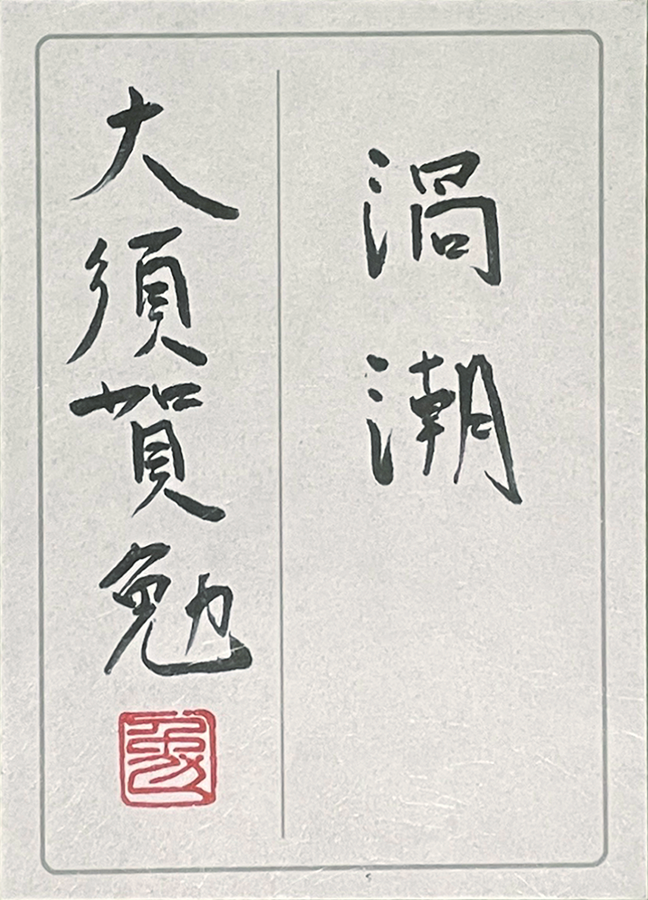 渦潮
大須賀勉